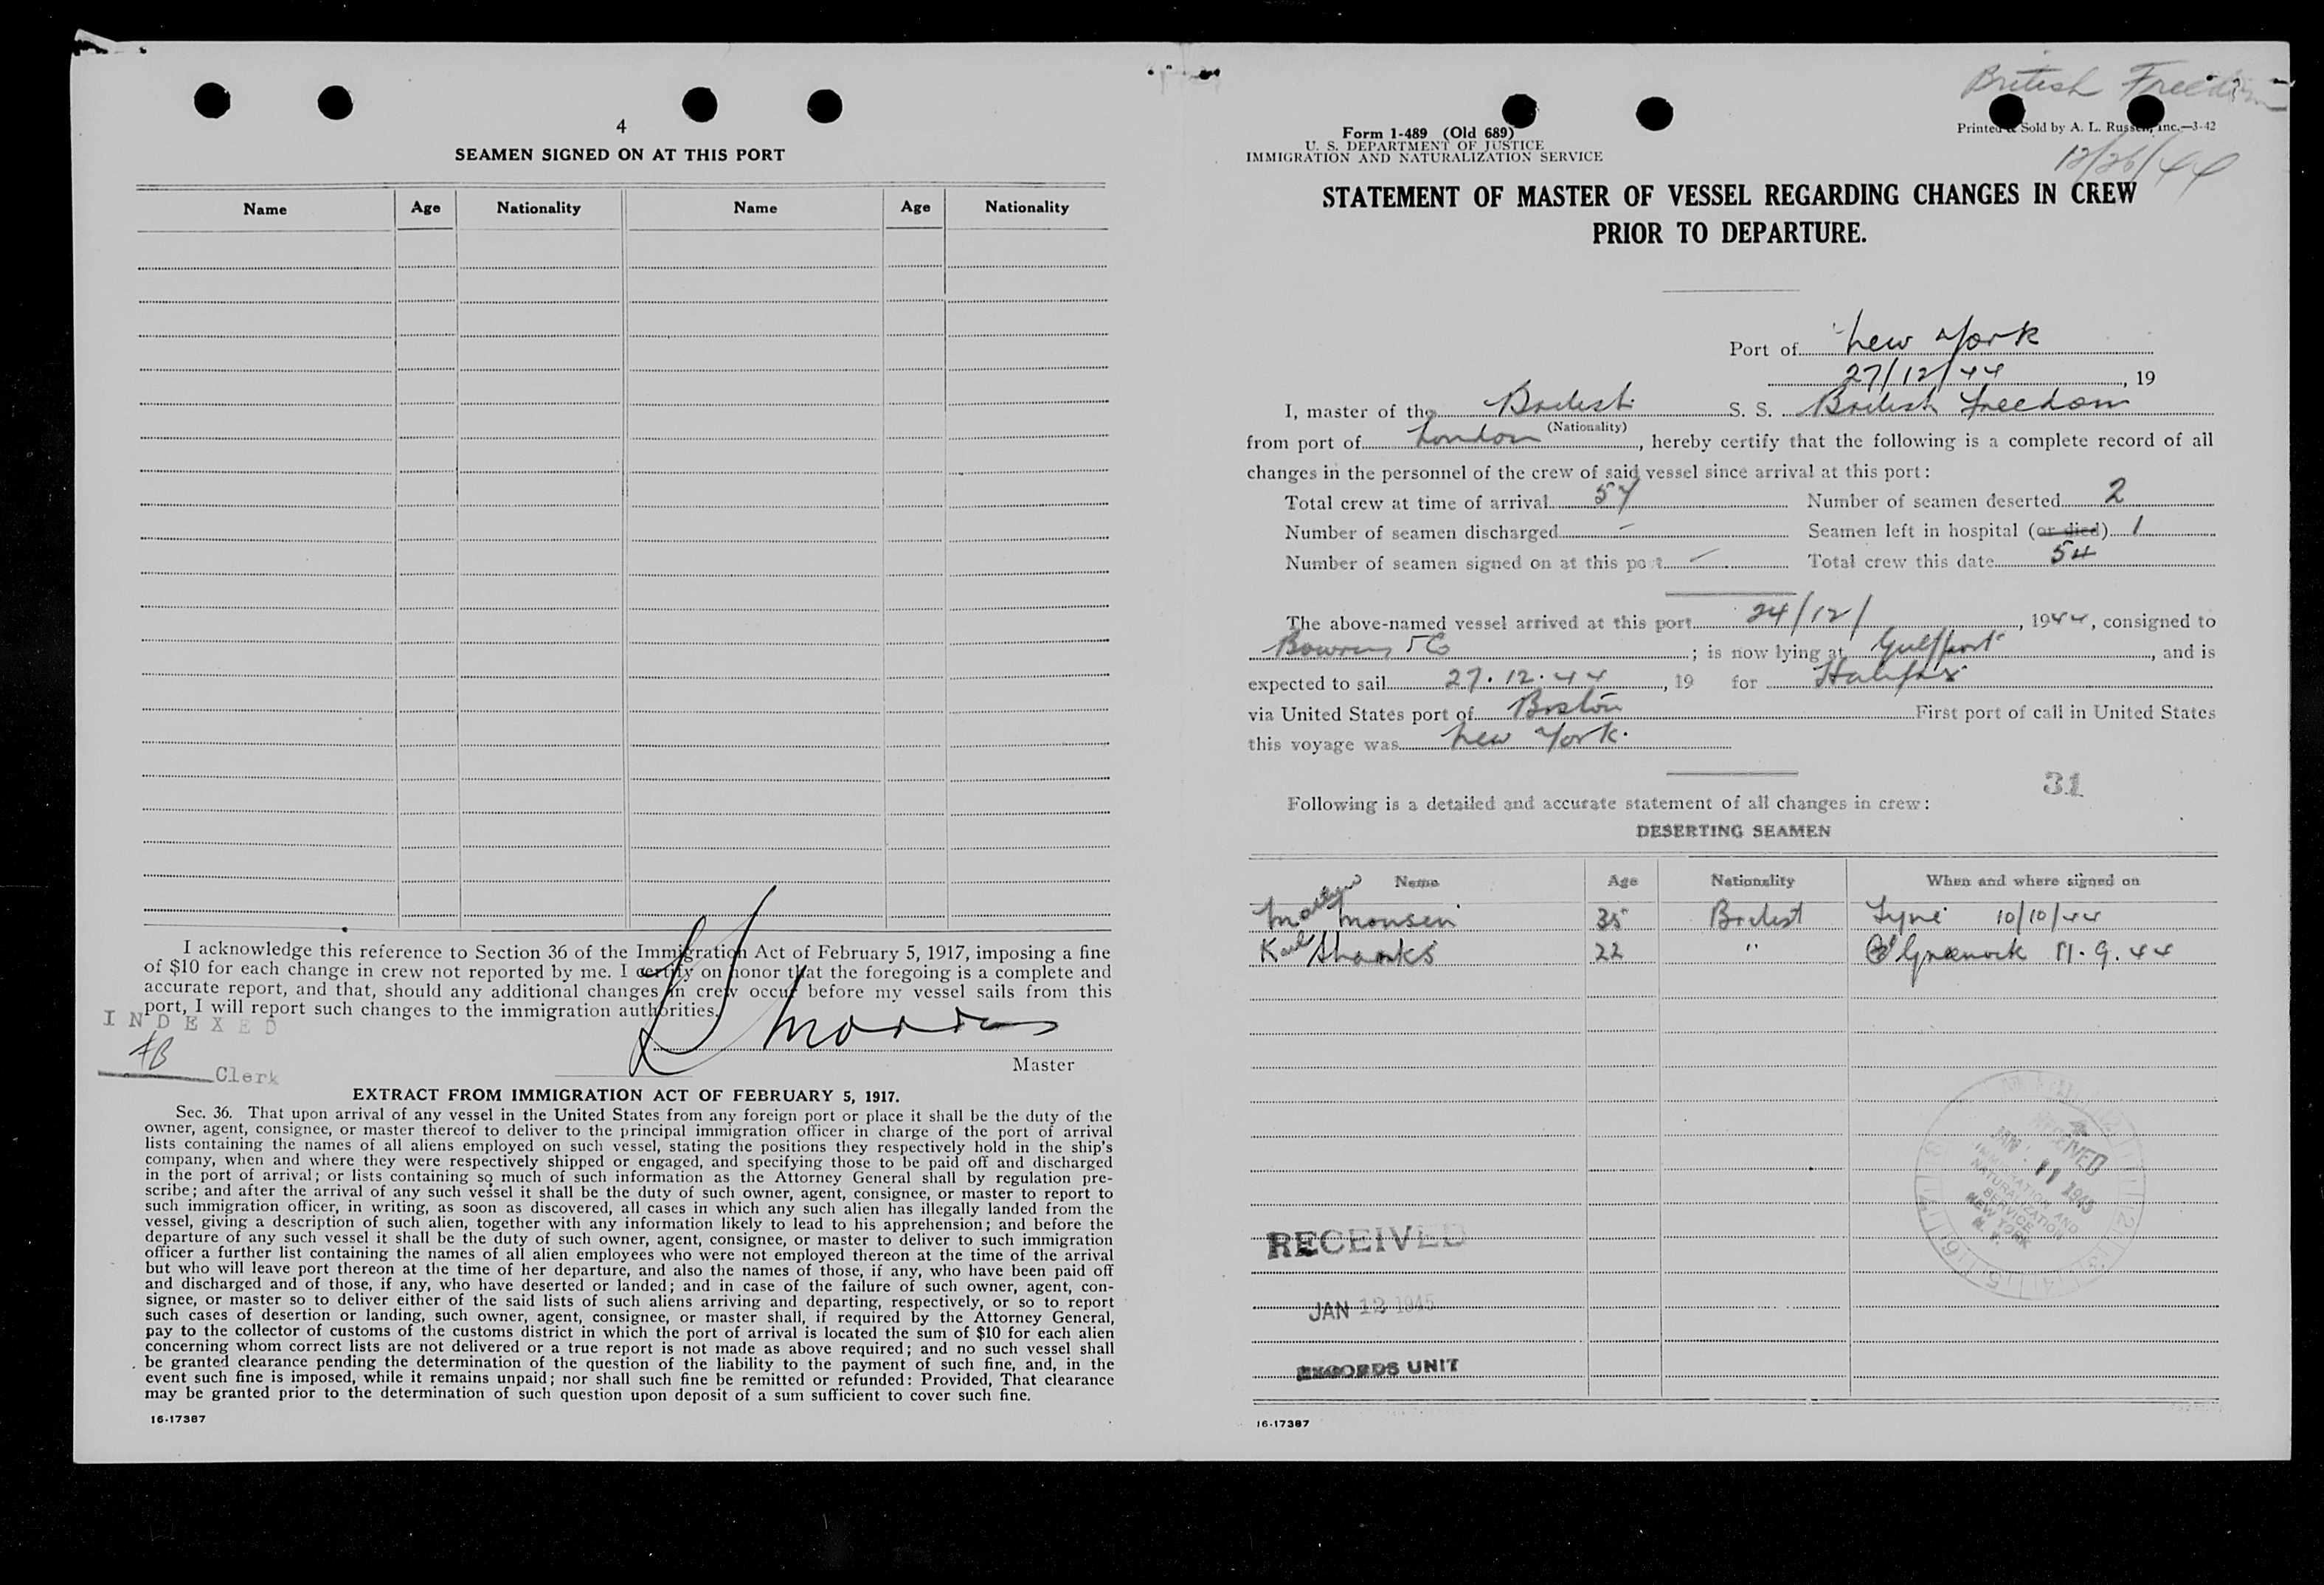 4
SEAMEN SIGNED ON AT THIS PORT
Name Age Nationality Name Age Nationality
I acknowledge this reference to Section 36 of the Immigration Act of February 5, 1917, imposing a fine
of $10 for each change in crew not reported by me. I certify on honor that the foregoing is a complete and
accurate report, and that, should any additional changes in crew occur before my vessel sails from this
port, I will report such changes to the immigration authorities.
INDEXED
Master
Clerk
EXTRACT FROM IMMIGRATION ACT OF FEBRUARY 5, 1917.
Sec. 36. That upon arrival of any vessel in the United States from any foreign port or place it shall be the duty of the
owner, agent, consignee, or master thereof to deliver to the principal immigration officer in charge of the port of arrival
lists containing the names of all aliens employed on such vessel, stating the positions they respectively hold in the ship's
company, when and where they were respectively shipped or engaged, and specifying those to be paid off and discharged
in the port of arrival; or lists containing so much of such information as the Attorney General shall by regulation pre-
scribe; and after the arrival of any such vessel it shall be the duty of such owner, agent, consignee, or master to report to
such immigration officer, in writing, as soon as discovered, all cases in which any such alien has illegally landed from the
vessel, giving a description of such alien, together with any information likely to lead to his apprehension; and before the
departure of any such vessel it shall be the duty of such owner, agent, consignee, or master to deliver to such immigration
officer a further list containing the names of all alien employees who were not employed thereon at the time of the arrival
but who will leave port thereon at the time of her departure, and also the names of those, if any, who have been paid off
and discharged and of those, if any, who have deserted or landed; and in case of the failure of such owner, agent, con-
signee, or master so to deliver either of the said lists of such aliens arriving and departing, respectively, or so to report
such cases of desertion or landing, such owner, agent, consignee, or master shall, if required by the Attorney General,
pay to the collector of customs of the customs district in which the port of arrival is located the sum of $10 for each alien
concerning whom correct lists are not delivered or a true report is not made as above required; and no such vessel shall
be granted clearance pending the determination of the question of the liability to the payment of such fine, and, in the
event such fine is imposed, while it remains unpaid; nor shall such fine be remitted or refunded: Provided, That clearance
may be granted prior to the determination of such question upon deposit of a sum sufficient to cover such fine.
16-17387
British Freedom
Form 1-489 (Old 689)
Printed & Sold by A. L. Russell, Inc.—3-42
U. S. DEPARTMENT OF JUSTICE
IMMIGRATION AND NATURALIZATION SERVICE
12/26/44
STATEMENT OF MASTER OF VESSEL REGARDING CHANGES IN CREW
PRIOR TO DEPARTURE.
Port of New York
27/12/44, 19
I, master of the British S. S. British Freedom
(Nationality)
from port of London, hereby certify that the following is a complete record of all
changes in the personnel of the crew of said vessel since arrival at this port:
Total crew at time of arrival 57 Number of seamen deserted 2
Number of seamen discharged - Seamen left in hospital (or died) 1
Number of seamen signed on at this port - Total crew this date 54
The above-named vessel arrived at this port 24/12/, 1944, consigned to
Bowring & Co; is now lying at Gulfport, and is
expected to sail 27.12.44, 19 for Halifax
via United States port of Boston First port of call in United States
this voyage was New York.
31
Following is a detailed and accurate statement of all changes in crew:
DESERTING SEAMEN
Name Age Nationality When and where signed on
Monsen 35 British Tyne 10/10/44
Karl Shanks 22 " Greenock 11.9.44
RECEIVED
JAN 11 1945
IMMIGRATION AND
NATURALIZATION
SERVICE
NEW YORK
N. Y.
RECEIVED
JAN 12 1945
RECORDS UNIT
16-17387